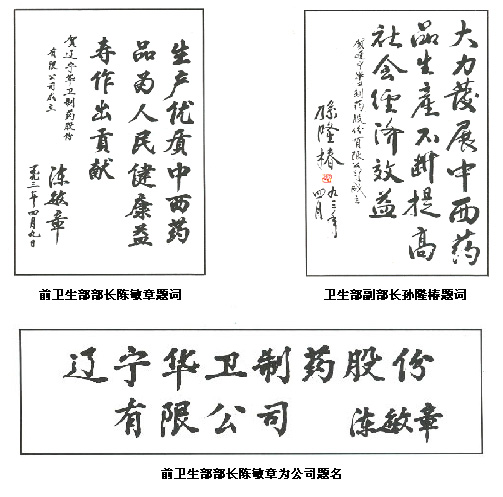 生产优质中西药
品为人民健康益
寿作出贡献
贺辽宁华卫制药股份
有限公司成立
陈敏章
一九九三年四月九日
前卫生部部长陈敏章题词
大力發展中西药
品生產不断提高
社会經济效益
贺辽宁华卫制药股份有限公司成立
孫隆椿
九三年
四月
卫生部副部长孙隆椿题词
辽宁华卫制药股份
有限公司 陈敏章
前卫生部部长陈敏章为公司题名